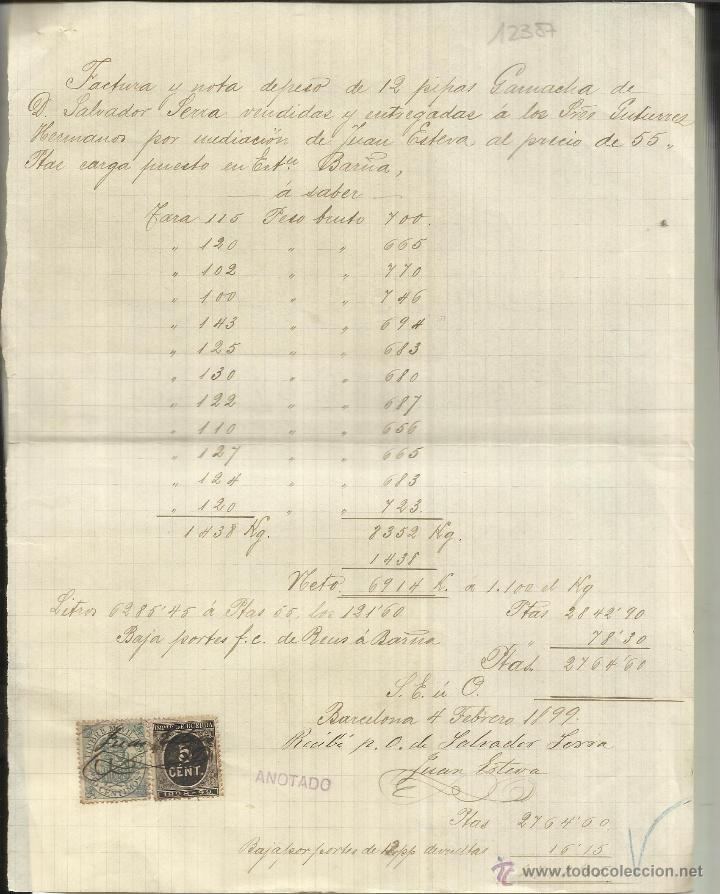 12387
Factura y nota de peso de 12 pipas Garnacha de
D. Salvador Serra vendidas y entregadas á los Sres Gutierrez
Hermanos por mediación de Juan Esteva, al precio de 55 "
Ptas carga puesto en Barna,
á saber
Tara 115 Peso bruto 700.
" 120 " " 665
" 102 " " 770
" 100 " " 746
" 143 " " 694
" 125 " " 683
" 130 " " 680
" 122 " " 687
" 110 " " 656
" 127 " " 665
" 124 " " 683
" 120 " " 723
1438 Kg. 8352 Kg.
1438
Neto. 6914 K. a 1.100 el Kg
Litros 6285'45 á Ptas 55, los 121'60 Ptas 2842'90
Baja portes f.c. de Reus á Barna " 78'30
Ptas. 2764'60
S. E. ú O.
Barcelona 4 Febrero 1899.
Recibí p. O. de Salvador Serra
Juan Esteva
IMPTO DE GUERRA
5
CENT.
1898-99
CENTIMOS
ANOTADO
Ptas 2764'60
Baja por portes de 12 pp devueltas 16'15
www.todocoleccion.net